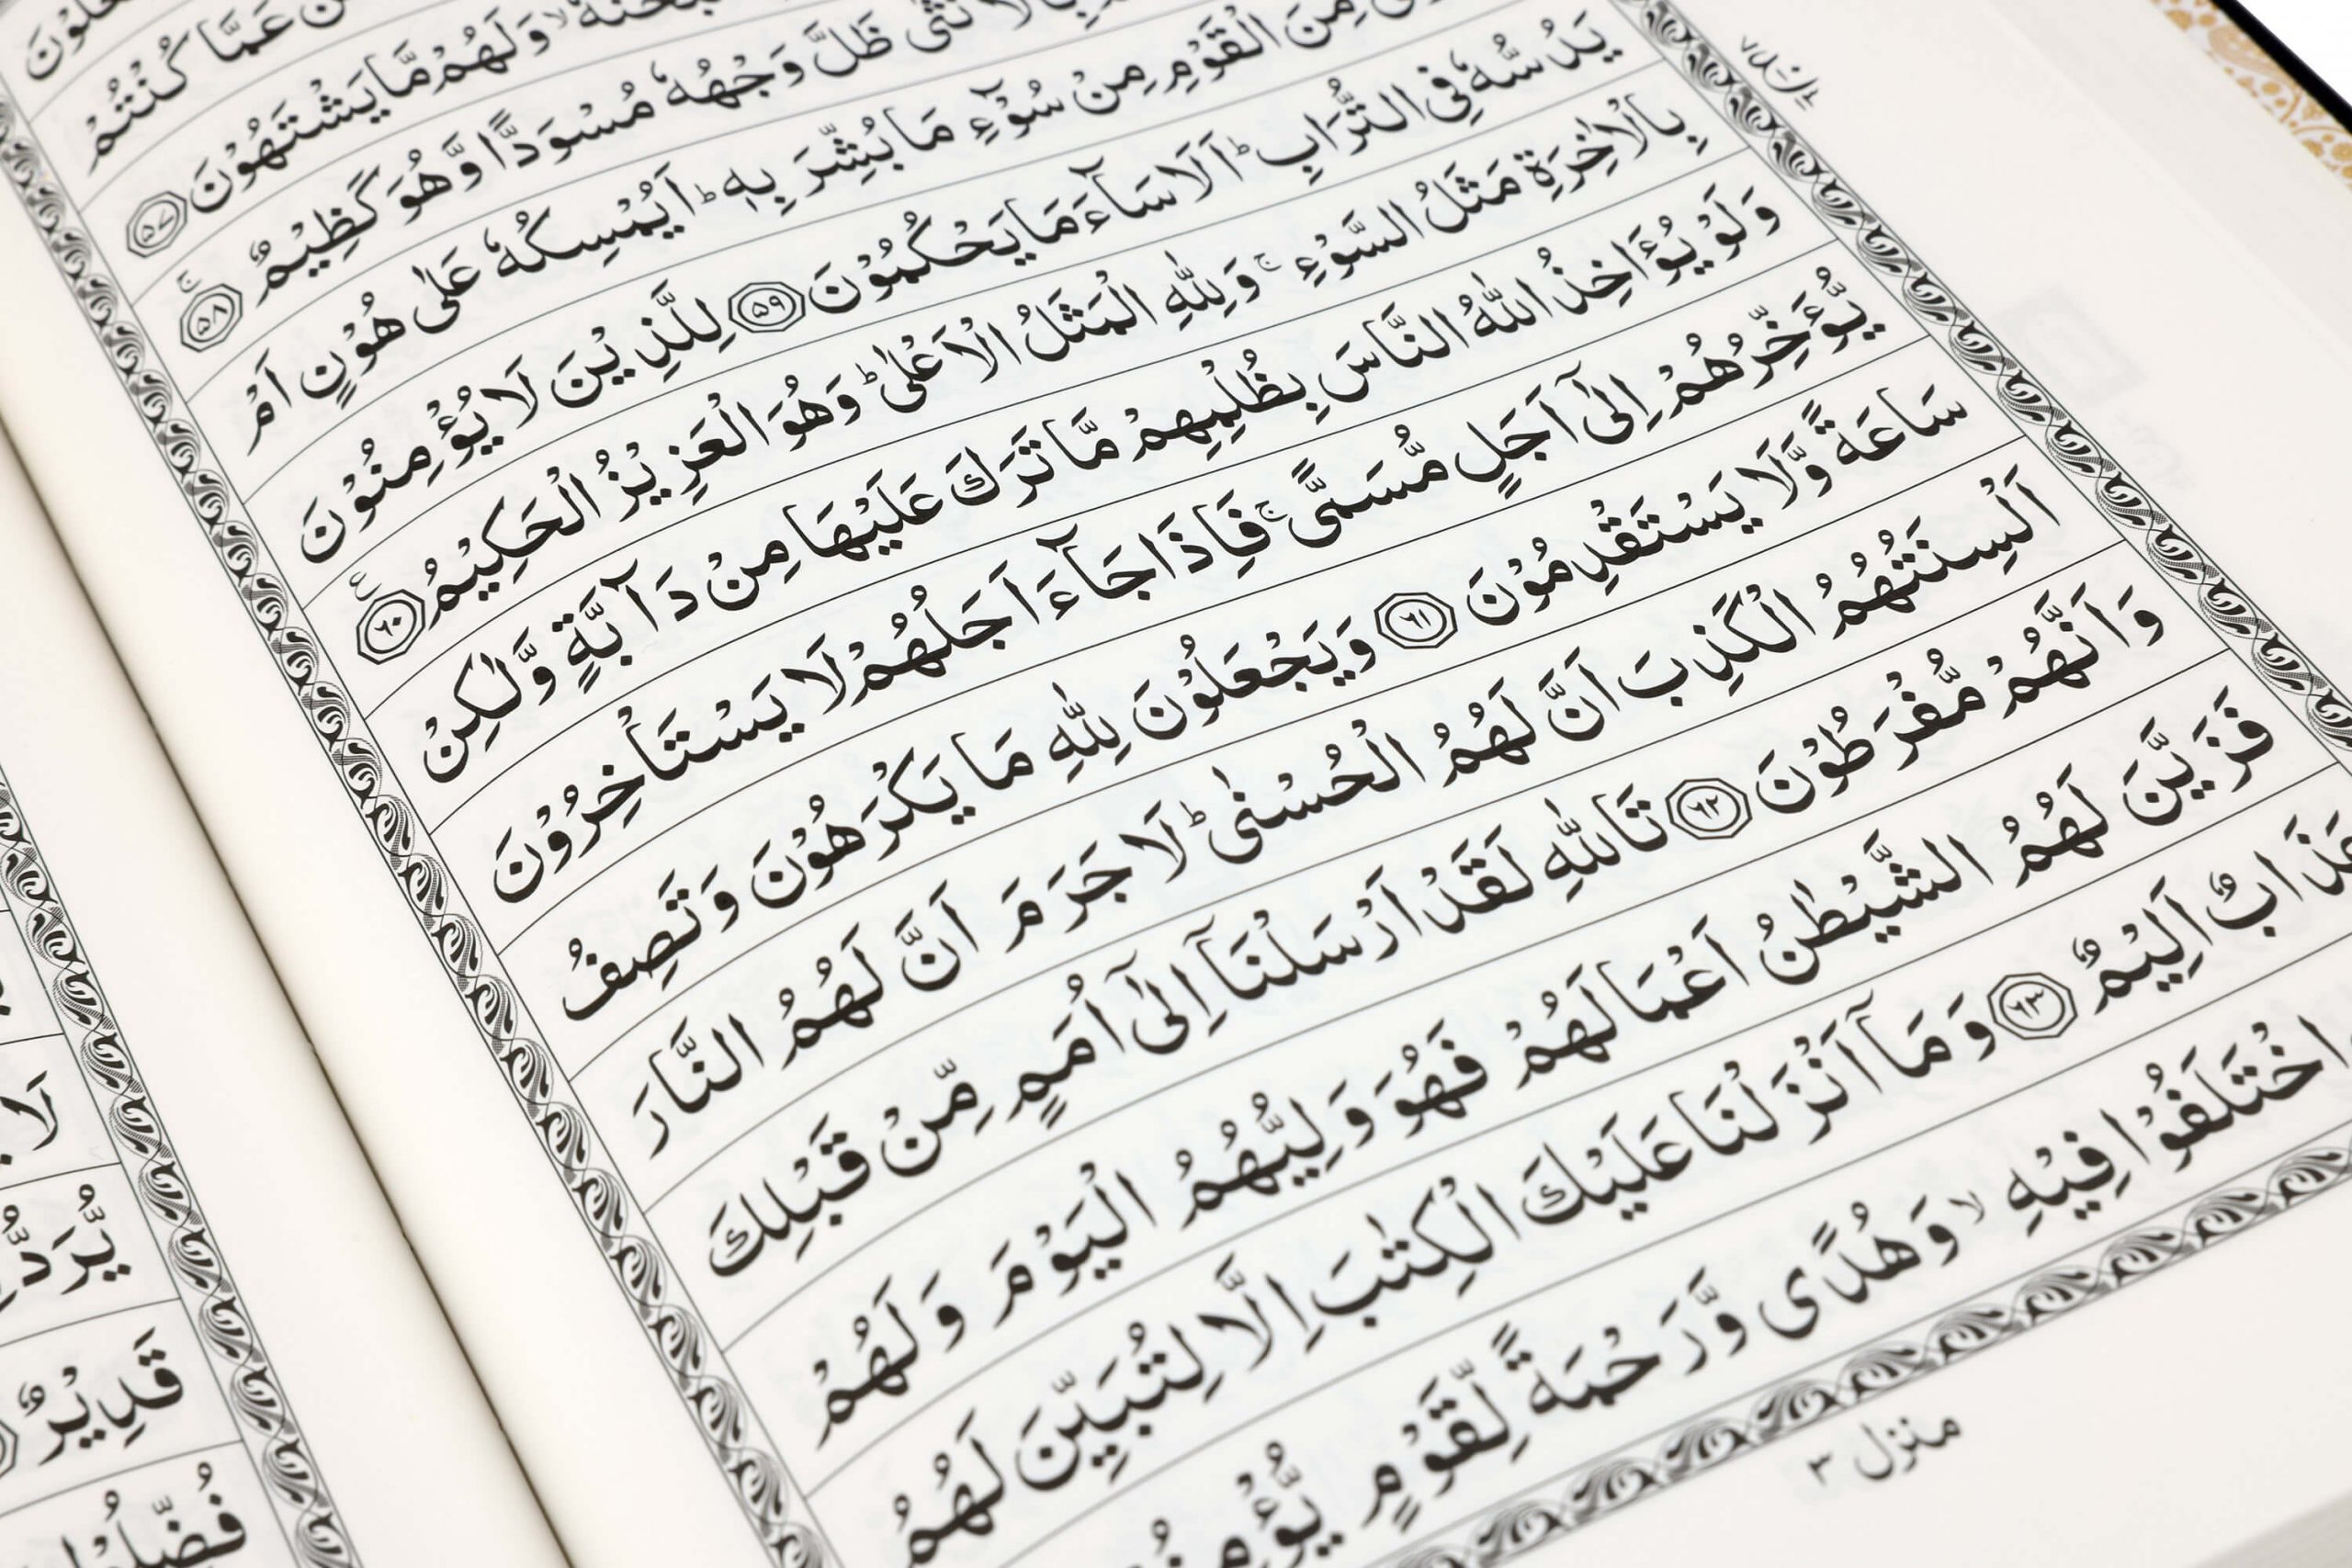 عَمَّا كُنْتُمْ
وَلَهُمْ مَّا يَشْتَهُوْنَ ﴿۵۷﴾
ظَلَّ وَجْهُهٗ مُسْوَدًّا وَّهُوَ كَظِيْمٌ ۚ ﴿۵۸﴾
مِنَ الْقَوْمِ مِنْ سُوْٓءِ مَا بُشِّرَ بِهٖ ؕ اَيُمْسِكُهٗ عَلٰى هُوْنٍ اَمْ
يَدُسُّهٗ فِى التُّرَابِ ؕ اَلَا سَآءَ مَا يَحْكُمُوْنَ ﴿۵۹﴾ لِلَّذِيْنَ لَا يُؤْمِنُوْنَ
بِالْاٰخِرَةِ مَثَلُ السَّوْءِ ۚ وَلِلّٰهِ الْمَثَلُ الْاَعْلٰى ؕ وَهُوَ الْعَزِيْزُ الْحَكِيْمُ ﴿۶۰﴾
وَلَوْ يُؤَاخِذُ اللّٰهُ النَّاسَ بِظُلْمِهِمْ مَّا تَرَكَ عَلَيْهَا مِنْ دَآبَّةٍ وَّلٰكِنْ
يُّؤَخِّرُهُمْ اِلٰٓى اَجَلٍ مُّسَمًّى ۚ فَاِذَا جَآءَ اَجَلُهُمْ لَا يَسْتَاْخِرُوْنَ
سَاعَةً وَّلَا يَسْتَقْدِمُوْنَ ﴿۶۱﴾ وَيَجْعَلُوْنَ لِلّٰهِ مَا يَكْرَهُوْنَ وَتَصِفُ
اَلْسِنَتُهُمُ الْكَذِبَ اَنَّ لَهُمُ الْحُسْنٰى ؕ لَا جَرَمَ اَنَّ لَهُمُ النَّارَ
وَاَنَّهُمْ مُّفْرَطُوْنَ ﴿۶۲﴾ تَاللّٰهِ لَقَدْ اَرْسَلْنَاۤ اِلٰٓى اُمَمٍ مِّنْ قَبْلِكَ
فَزَيَّنَ لَهُمُ الشَّيْطٰنُ اَعْمَالَهُمْ فَهُوَ وَلِيُّهُمُ الْيَوْمَ وَلَهُمْ
عَذَابٌ اَلِيْمٌ ﴿۶۳﴾ وَمَاۤ اَنْزَلْنَا عَلَيْكَ الْكِتٰبَ اِلَّا لِتُبَيِّنَ لَهُمُ
اخْتَلَفُوْا فِيْهِ ۙ وَهُدًى وَّرَحْمَةً لِّقَوْمٍ
منزل ۳
قَدِيْرٌ